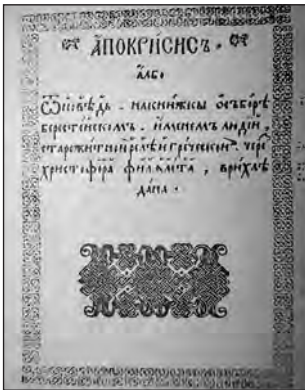 АПОКРИСИСЪ.
албо
Ѿповѣдь. на книжкы о съборѣ
берестейскомъ. именемъ людій
старожитной релѣи греческои. через
христофора филялета, врихлѣ
дана.